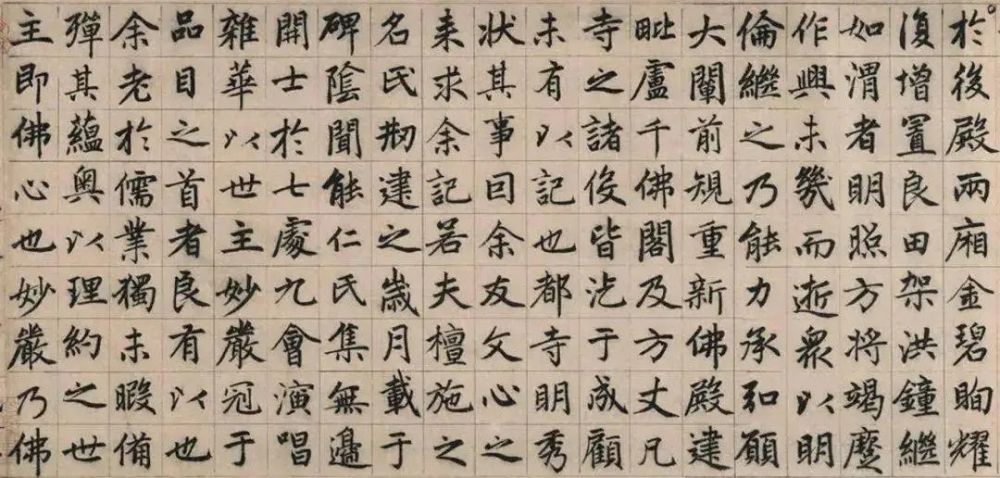 於後殿兩廂金碧眴耀
復增置良田架洪鐘繼
如渭者明照方將竭麼
作興未幾而逝眾以明
倫繼之乃能力承弘願
大闡前規重新佛殿建
毗盧千佛閣及方丈凡
寺之諸役皆汔于成顧
未有以記也都寺明秀
狀其事囙余友文心之
来求余記若夫檀施之
名氏刱建之歲月載于
碑陰聞能仁氏集無邊
開士於七處九會演唱
雜華以世主妙嚴冠于
品目之首者良有以也
余老於儒業獨未暇備
殫其蘊奧以理約之世
主即佛心也妙嚴乃佛